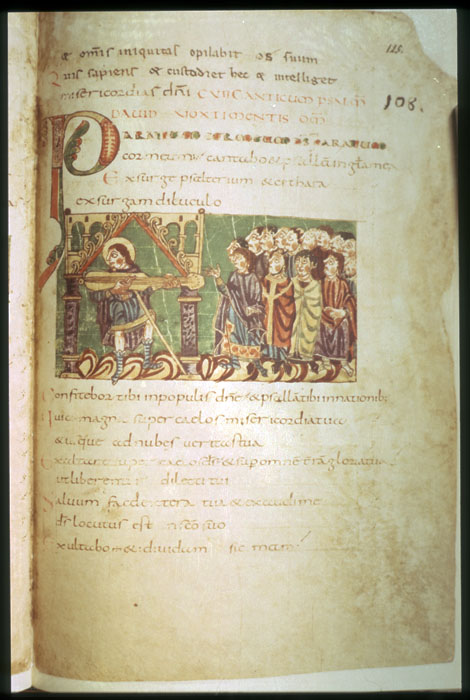 & om̄is iniquitas opilabit os suum
Quis sapiens & custodiet hec & intelleget
misericordias dn̄i CVII CANTICUM PSALMI
115.
108.
DAUID
PARATUM COR MEUM PARATUM
cor meum cantabo & psallam in gloria mea
Exsurge psalterium & cithara
exsurgam diluculo
Confitebor tibi in populis dn̄e & psallā tibi in nationibus
quia magna super caelos misericordia tua
& usque ad nubes ueritas tua
Exaltare super caelos ds̄ & super omnem terrā gloria tua
ut liberentur dilecti tui
Saluum fac dextera tua & exaudi me
ds̄ locutus est in sc̄o suo
Exultabo & diuidam sicimam